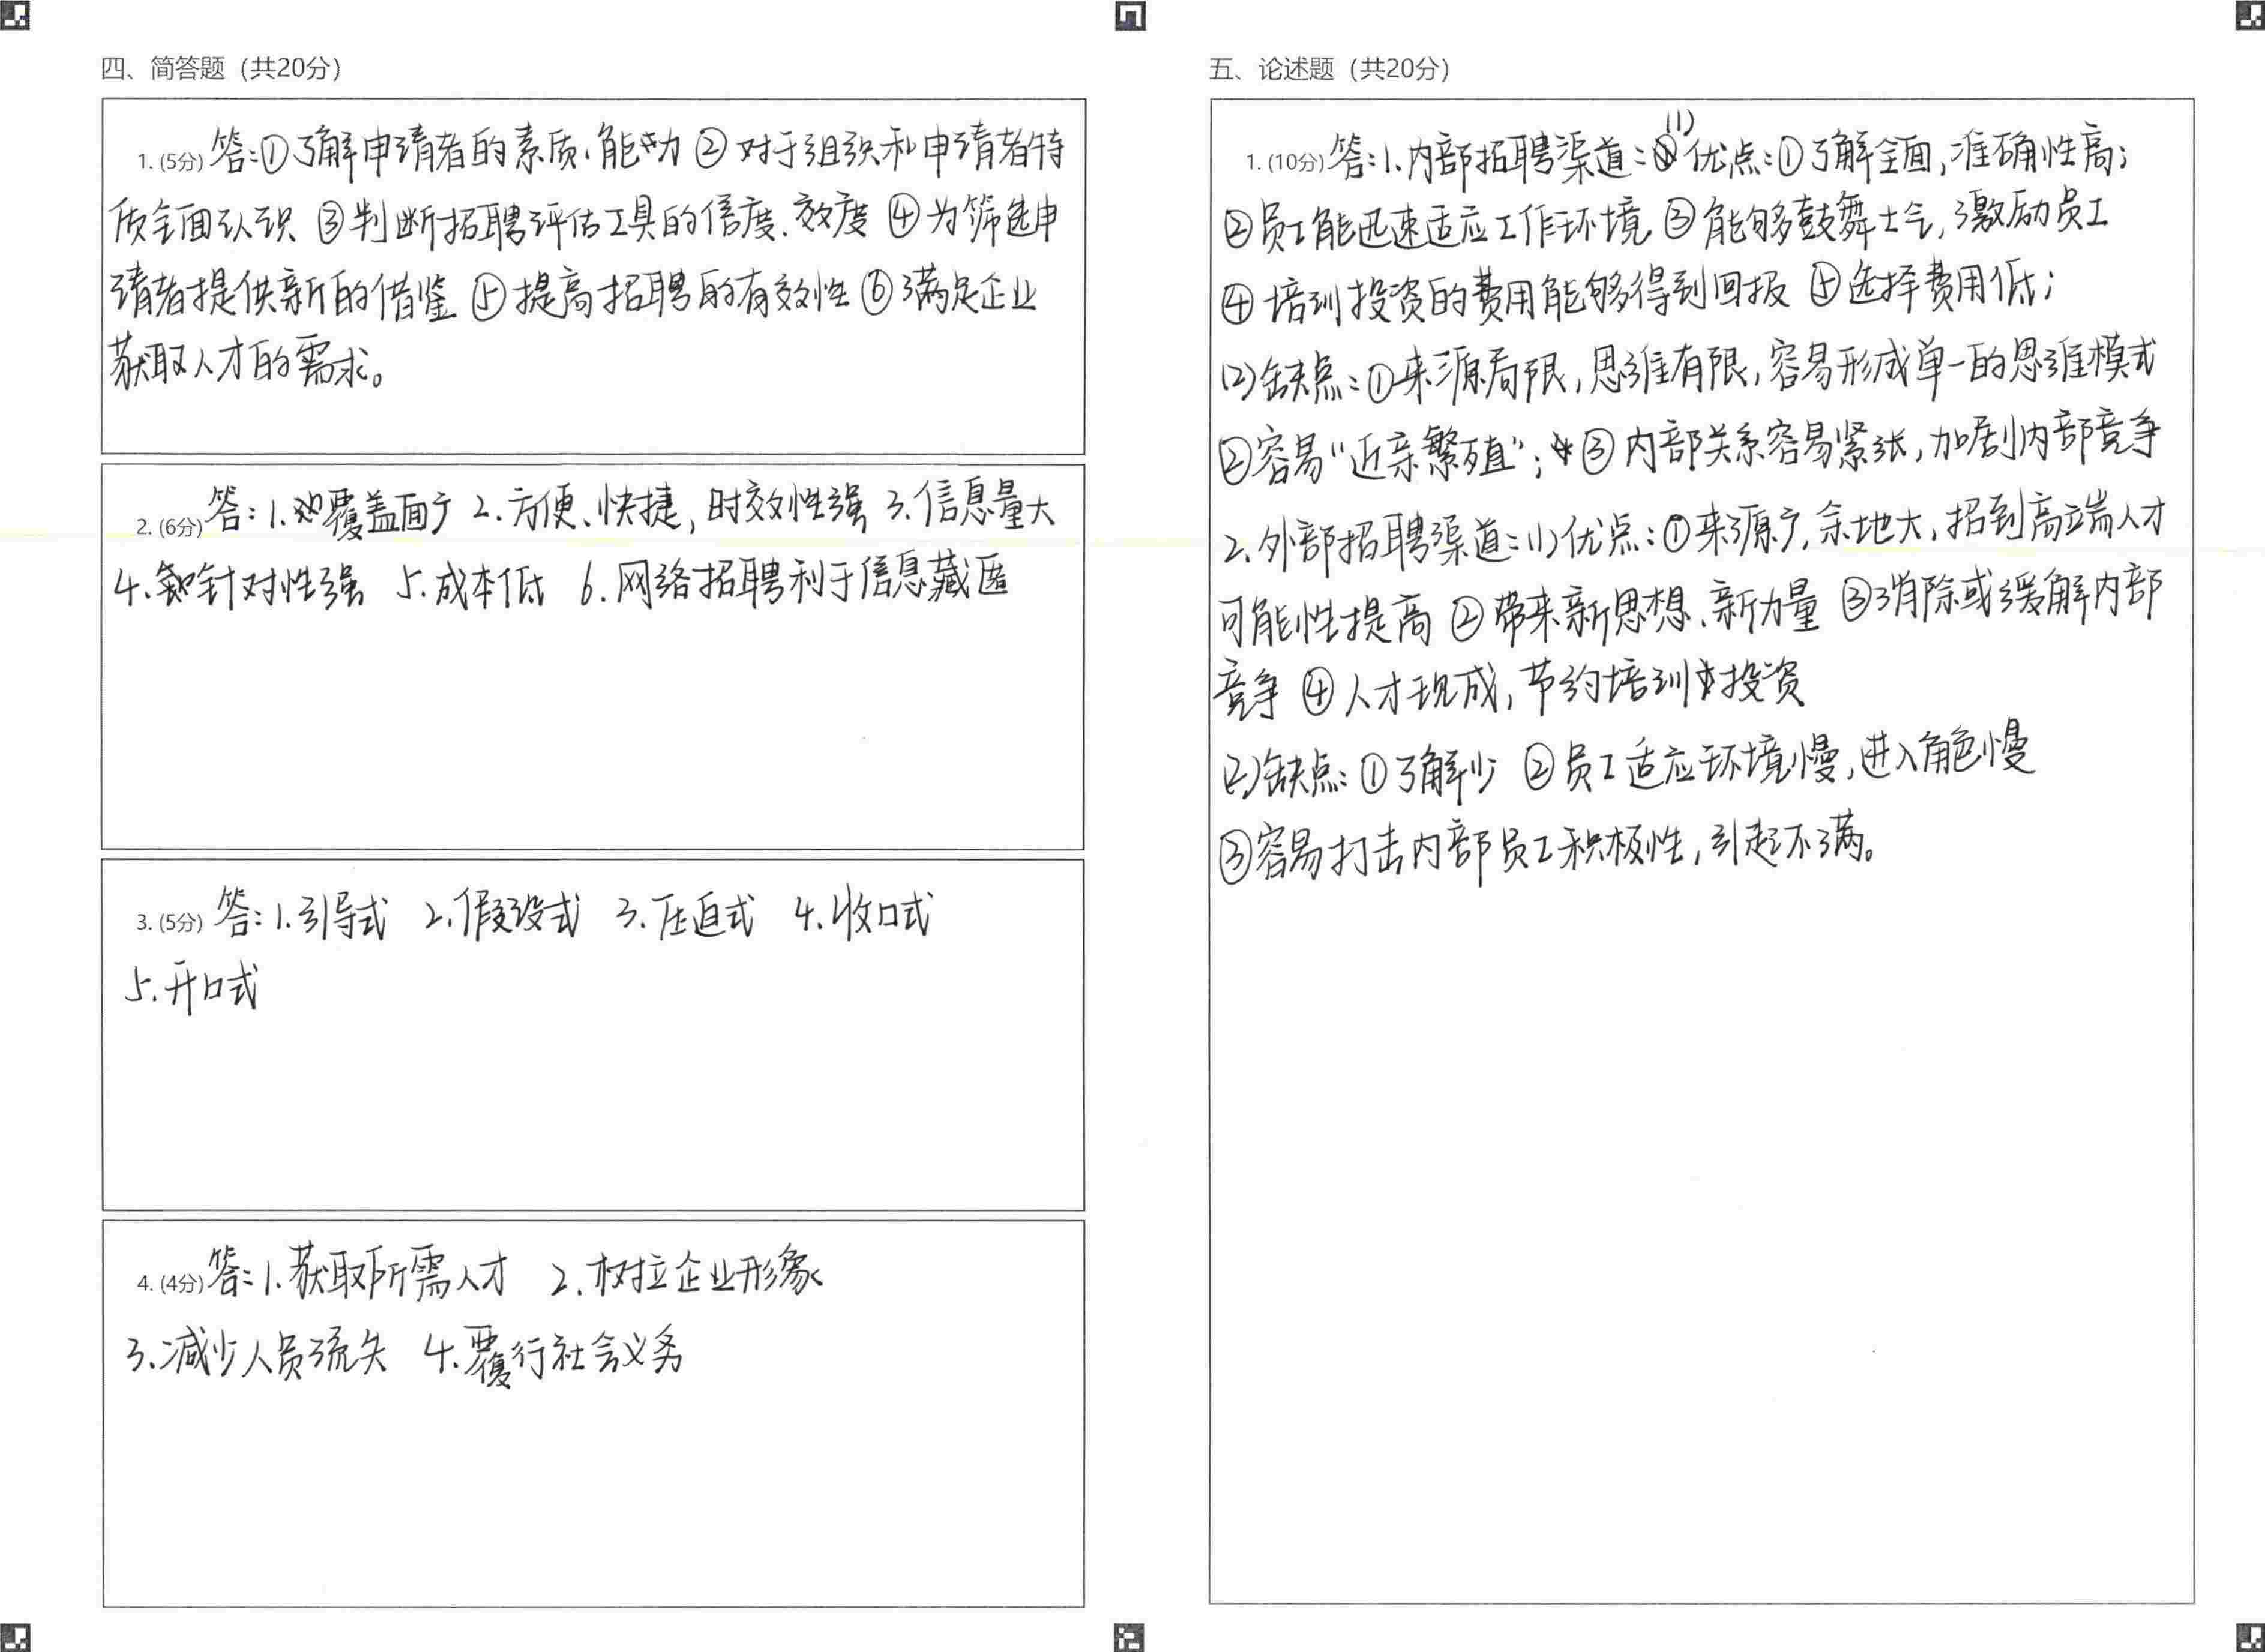 四、简答题（共20分）
1. (5分) 答:①了解申请者的素质、能力 ②对于组织和申请者特
质全面认识 ③判断招聘评估工具的信度、效度 ④为筛选申
请者提供新的借鉴 ⑤提高招聘的有效性 ⑥满足企业
获取人才的需求。
2. (6分) 答:1.覆盖面广 2.方便、快捷,时效性强 3.信息量大
4.针对性强 5.成本低 6.网络招聘利于信息藏匿
3. (5分) 答:1.引导式 2.假设式 3.压迫式 4.收口式
5.开口式
4. (4分) 答:1.获取所需人才 2.树立企业形象
3.减少人员流失 4.覆行社会义务
五、论述题（共20分）
1. (10分) 答:1.内部招聘渠道:(1)优点:①了解全面,准确性高;
②员工能迅速适应工作环境 ③能够鼓舞士气,激励员工
④培训投资的费用能够得到回报 ⑤选择费用低;
(2)缺点:①来源局限,思维有限,容易形成单一的思维模式
②容易“近亲繁殖”; ③内部关系容易紧张,加剧内部竞争
2.外部招聘渠道:(1)优点:①来源广,余地大,招到高端人才
可能性提高 ②带来新思想、新力量 ③消除或缓解内部
竞争 ④人才现成,节约培训投资
(2)缺点:①了解少 ②员工适应环境慢,进入角色慢
③容易打击内部员工积极性,引起不满。